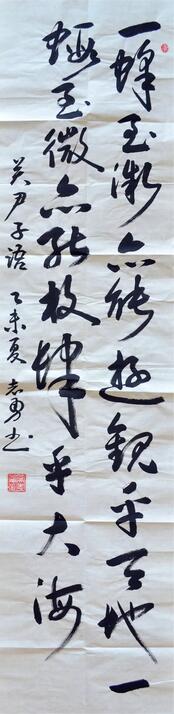 一蜂至微亦能遊观乎天地一
蝦至微亦能放肆乎大海
关尹子语 乙未夏 志勇书